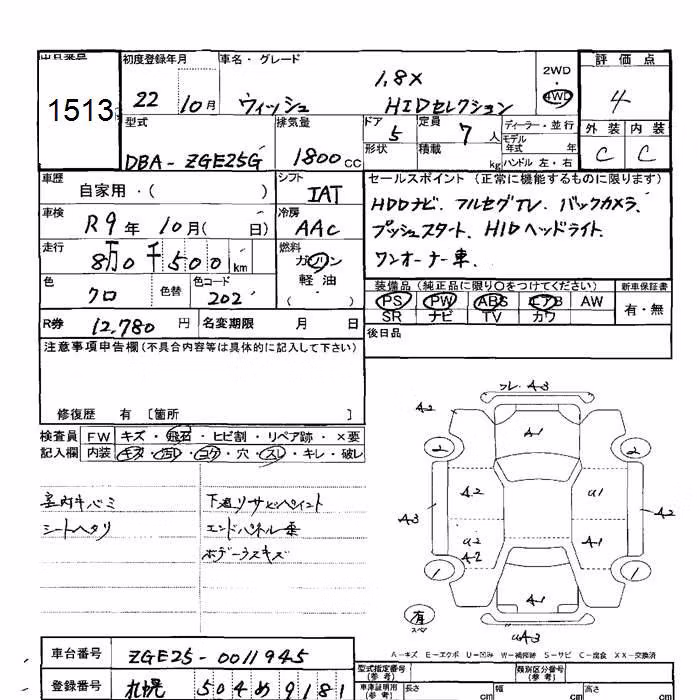 出品番号 初度登録年月 車名・グレード 2WD ・ 4WD 評価点
1513 22 10月 ウィッシュ 1.8X HIDセレクション 4
型式 排気量 ドア 5 定員 7人 ディーラー・並行 外装 内装
DBA-ZGE25G 1800cc 形状 積載 kg モデル年式 年 ハンドル 左・右 C C
車歴 自家用・( ) シフト IAT セールスポイント(正常に機能するものに限ります)
車検 R9年 10月( 日) 冷房 AAC HDDナビ、フルセグTV、バックカメラ、
プッシュスタート、HIDヘッドライト、
走行 8万0千500km 燃料 ガソリン・軽油・( ) ワンオーナー車、
色 クロ 色替 色コード 202 装備品(純正品に限り〇をつけてください) 新車保証書
PS PW ABS エアB AW 有・無
R券 12,780円 名変期限 月 日 SR ナビ TV カワ
注意事項申告欄(不具合内容等は具体的に記入して下さい) 後日品
修復歴 有 〔箇所 〕
検査員 FW キズ・飛石・ヒビ割・リペア跡・×要
記入欄 内装 キズ・汚レ・コゲ・穴・スレ・キレ・破レ
室内キバミ 下廻リサビペイント
シートヘタリ エンドパネル
ボデーラスキズ
フレ.A3
A2 A-1
2 2
A2 u1
A3 A2
u2 A-1
A2
1 1
A-1
有 スペ uA3
A-キズ E-エクボ U-凹み W-補修跡 S-サビ C-腐食 XX-交換済
車台番号 ZGE25-0011945 型式指定番号(参考) 類別区分番号(参考)
登録番号 札幌 504め9181 車庫証明用(参考) 長さ cm 幅 cm 高さ cm